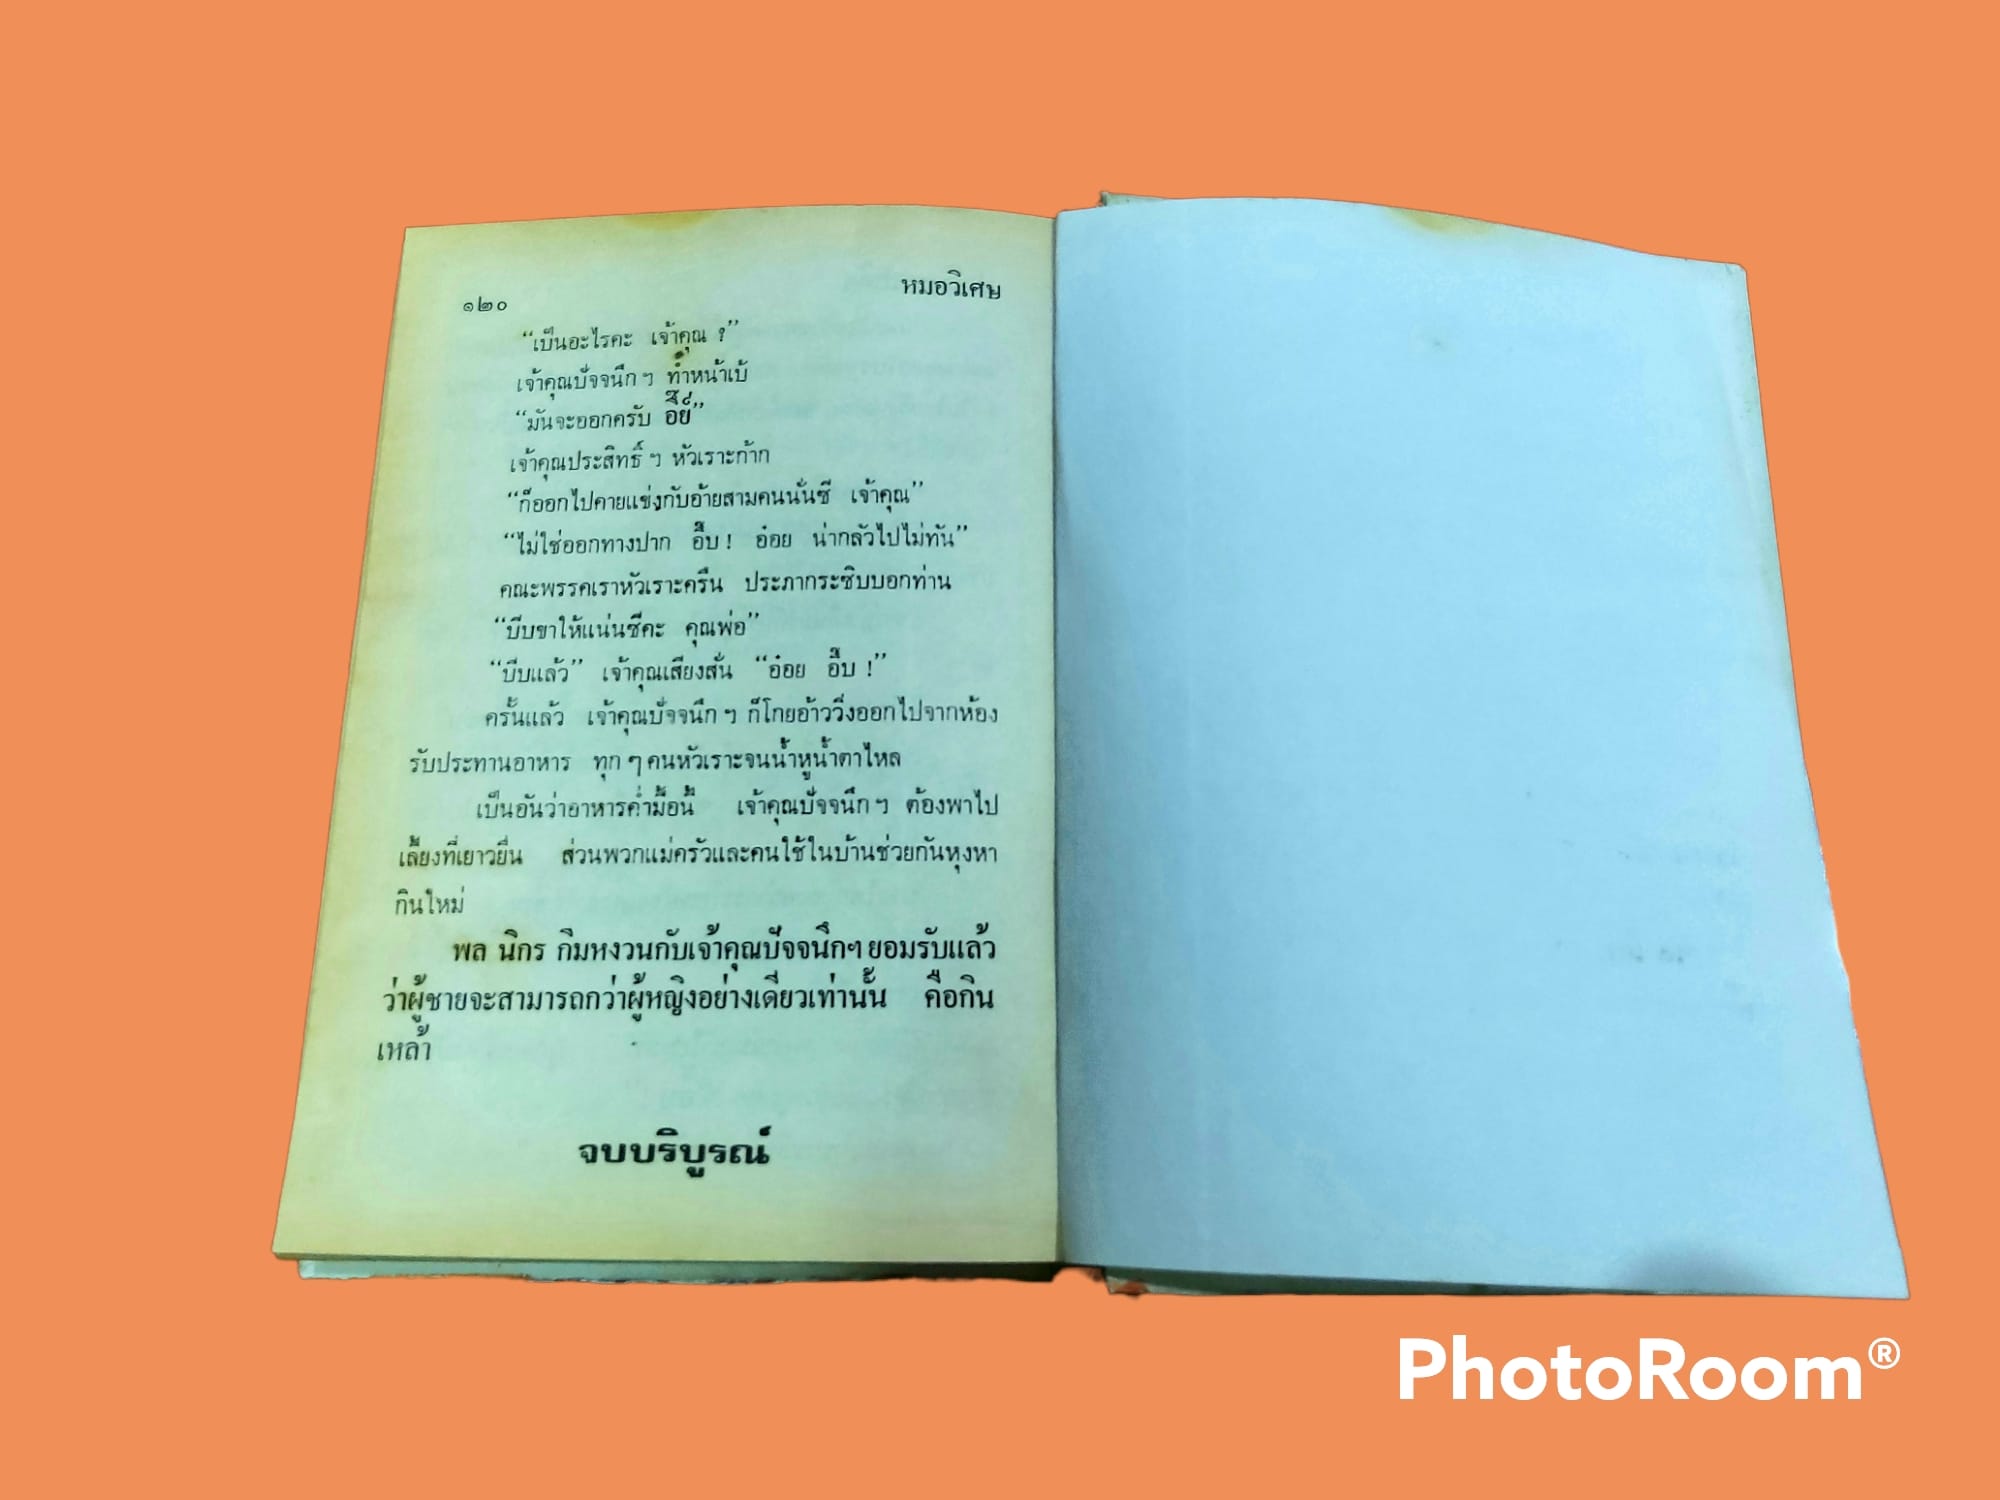 ๑๒๐ หมอวิเศษ
“เป็นอะไรคะ เจ้าคุณ ?”
เจ้าคุณปัจจนึก ฯ ทำหน้าเบ้
“มันจะออกครับ อึ๊ย์”
เจ้าคุณประสิทธิ์ ฯ หัวเราะก้าก
“ก็ออกไปคายแข่งกับอ้ายสามคนนั่นซี เจ้าคุณ”
“ไม่ใช่ออกทางปาก อึ๊บ ! อ๋อย น่ากลัวไปไม่ทัน”
คณะพรรคเราหัวเราะครืน ประภากระซิบบอกท่าน
“บีบขาให้แน่นซีคะ คุณพ่อ”
“บีบแล้ว” เจ้าคุณเสียงสั่น “อ๋อย อึ๊บ !”
ครั้นแล้ว เจ้าคุณปัจจนึก ฯ ก็โกยอ้าววิ่งออกไปจากห้อง
รับประทานอาหาร ทุก ๆ คนหัวเราะจนน้ำหูน้ำตาไหล
เป็นอันว่าอาหารค่ำมื้อนี้ เจ้าคุณปัจจนึก ฯ ต้องพาไป
เลี้ยงที่เยาวยื่น ส่วนพวกแม่ครัวและคนใช้ในบ้านช่วยกันหุงหา
กินใหม่
พล นิกร กิมหงวนกับเจ้าคุณปัจจนึกฯ ยอมรับแล้ว
ว่าผู้ชายจะสามารถกว่าผู้หญิงอย่างเดียวเท่านั้น คือกิน
เหล้า
จบบริบูรณ์
PhotoRoom®